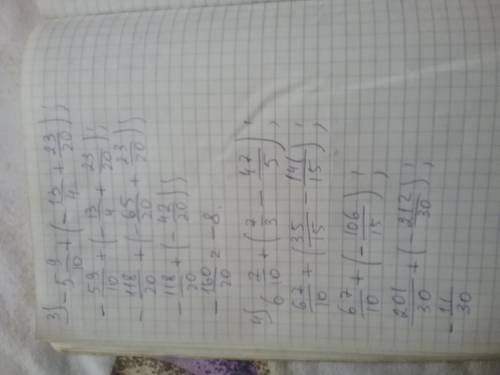 3) -5 9/10 + (- 13/4 + 23/20);
- 59/10 + (- 13/4 + 23/20);
- 118/20 + (- 65/20 + 23/20);
- 118/20 + (- 42/20);
- 160/20 = -8.
4) 6 7/10 + (7/3 - 47/5);
67/10 + (35/15 - 141/15);
67/10 + (- 106/15);
201/30 + (- 212/30);
- 11/30